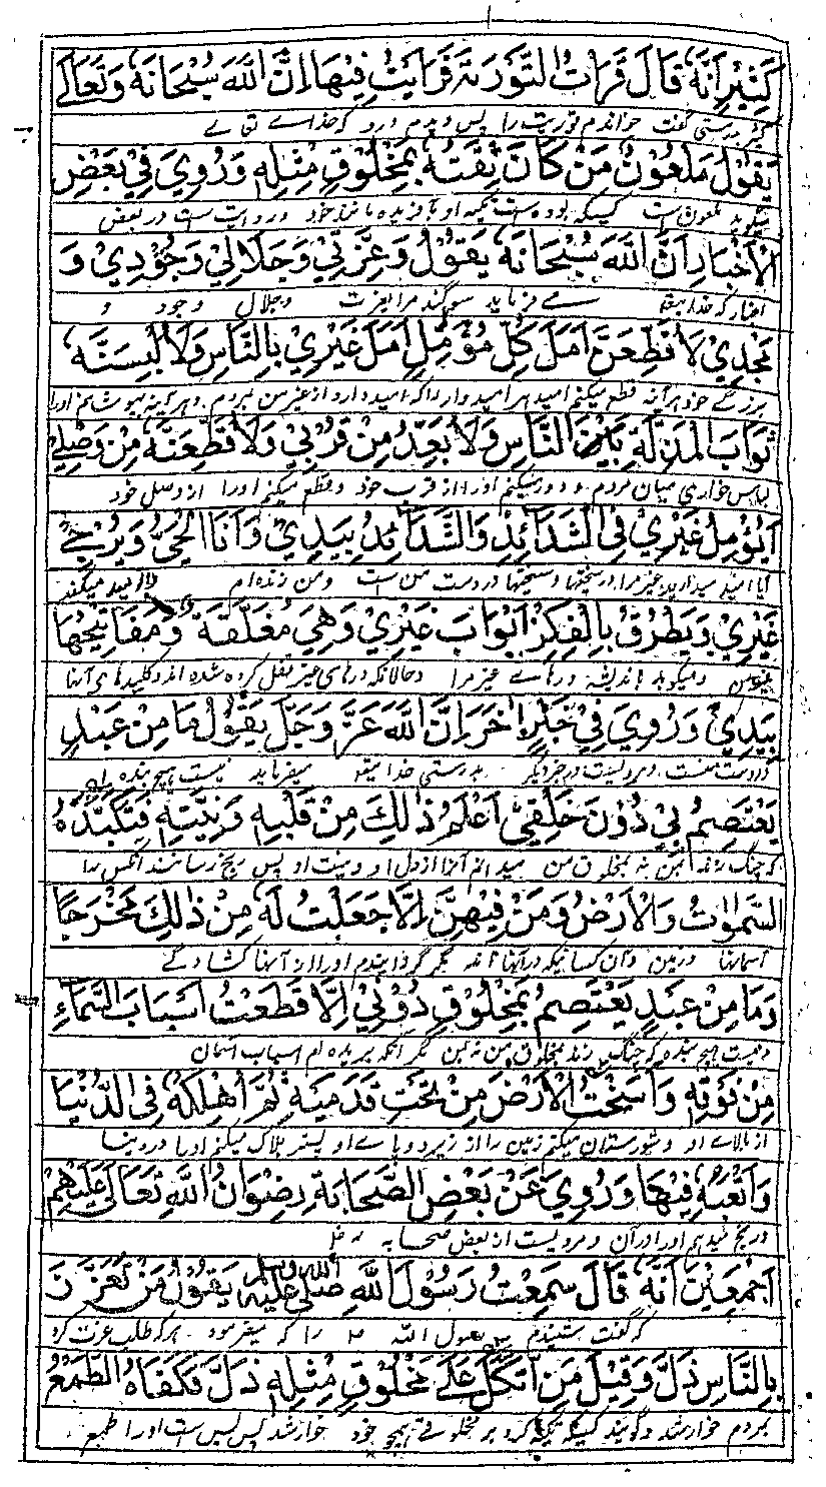 كَثِيْرٍ اَنَّهٗ قَالَ قَرَاْتُ التَّوْرٰىةَ فَرَاَيْتُ فِيْهَا اِنَّ اللّٰهَ سُبْحَانَهٗ وَتَعَالٰى
كثير بدرستى گفت خواندم توريت را پس ديدم درو كه خداے تعالے
يَقُوْلُ مَلْعُوْنٌ مَنْ كَانَ ثِقَتُهٗ بِمَخْلُوْقٍ مِثْلِهٖ وَرُوِيَ فِيْ بَعْضِ
ميگويد ملعون ست كسيكه بوده است تكيه او بآفريده مانند خود و روايت ست در بعض
الْاَخْبَارِ اَنَّ اللّٰهَ سُبْحَانَهٗ يَقُوْلُ وَعِزَّتِيْ وَجَلَالِيْ وَجُوْدِيْ وَ
اخبار كه خدايتعا مے فرمايد سوگند مرا بعزت و جلال و جود و
مَجْدِيْ لَاَقْطَعَنَّ اَمَلَ كُلِّ مُؤَمِّلٍ اَمَلَ غَيْرِيْ بِالنَّاسِ وَلَاُلْبِسَنَّهٗ
بزرگے خود هر آئنه قطع ميكنم اميد هر اميدوار را كه اميد دارد از غير من بمردم و هر آئنه بپوشانم او را
ثَوَابَ الْمَذَلَّةِ بَيْنَ النَّاسِ وَلَاُبَعِّدُ مِنْ قُرْبِيْ وَلَاَقْطَعَنَّهٗ مِنْ وَصْلِيْ
لباس خوارى ميان مردم و دور ميكنم او را از قرب خود و قطع ميكنم او را از وصل خود
اَيُؤَمِّلُ غَيْرِيْ فِي الشَّدَائِدِ وَالشَّدَائِدُ بِيَدِيْ وَاَنَا الْحَيُّ وَيُرْجٰى
آيا اميد ميدارد غير مرا در سختيها و سختيها در دست من ست و من زنده ام و اميد ميكند
غَيْرِيْ وَيَطْرُقُ بِالْفِكْرِ اَبْوَابَ غَيْرِيْ وَهِيَ مُغَلَّقَةٌ وَمَفَاتِيْحُهَا
بغير من و ميكوبد باندیشه درهاے غير مرا و حالانكه درهاى غير قفل كرده شده اند و كليدهاى آنها
بِيَدِيْ وَرُوِيَ فِيْ خَبَرٍ اٰخَرَ اِنَّ اللّٰهَ عَزَّ وَجَلَّ يَقُوْلُ مَا مِنْ عَبْدٍ
در دست منست و مرويست در خبر ديگر بدرستى خدايتعا ميفرمايد نيست هيچ بنده
يَعْتَصِمُ بِيْ دُوْنَ خَلْقِيْ اَعْلَمُ ذٰلِكَ مِنْ قَلْبِهٖ وَنِيَّتِهٖ فَتَكِيْدُهُ
كه چنگ زند بمن نه بمخلوق من ميدانم آنرا از دل او و نيت او پس رنج رسانند آنكس را
السَّمٰوٰتُ وَالْاَرْضُ وَمَنْ فِيْهِنَّ اِلَّا جَعَلْتُ لَهٗ مِنْ ذٰلِكَ مَخْرَجًا
آسمانها و زمين و آن كسانيكه در آنها اند مگر گردانيدم او را از آنها كشادگے
وَمَا مِنْ عَبْدٍ يَعْتَصِمُ بِمَخْلُوْقٍ دُوْنِيْ اِلَّا قَطَعْتُ اَسْبَابَ السَّمَاءِ
و نيست هيچ بنده كه چنگ زند بمخلوق من نه بمن مگر آنكه بريده ام اسباب آسمان
مِنْ فَوْقِهٖ وَاَسَخْتُ الْاَرْضَ مِنْ تَحْتِ قَدَمَيْهِ ثُمَّ اُهْلِكُهٗ فِي الدُّنْيَا
از بالاے او و شورستان ميكنم زمين را از زير دو پاے او پستر هلاك ميكنم او را در دنيا
وَاُتْعِبُهٗ فِيْهَا وَرُوِيَ عَنْ بَعْضِ الصَّحَابَةِ رِضْوَانُ اللّٰهِ تَعَالٰى عَلَيْهِمْ
و رنج ميدهم او را در آن و مرويست از بعض صحابه
اَجْمَعِيْنَ اَنَّهٗ قَالَ سَمِعْتُ رَسُوْلَ اللّٰهِ صَلَّى اللّٰهُ عَلَيْهِ وَسَلَّمَ يَقُوْلُ مَنْ تَعَزَّزَ
كه گفت شنيدم رسول الله را كه ميفرمود هر كه طلب عزت كرد
بِالنَّاسِ ذَلَّ وَقِيْلَ مَنِ اتَّكَلَ عَلٰى مَخْلُوْقٍ مِثْلِهٖ ذَلَّ فَكَفَاهُ الطَّمَعُ
بمردم خوار شد و گويند كسيكه تكيه كرد بر مخلوقے همچو خود خوار شد پس بس است او را طمع